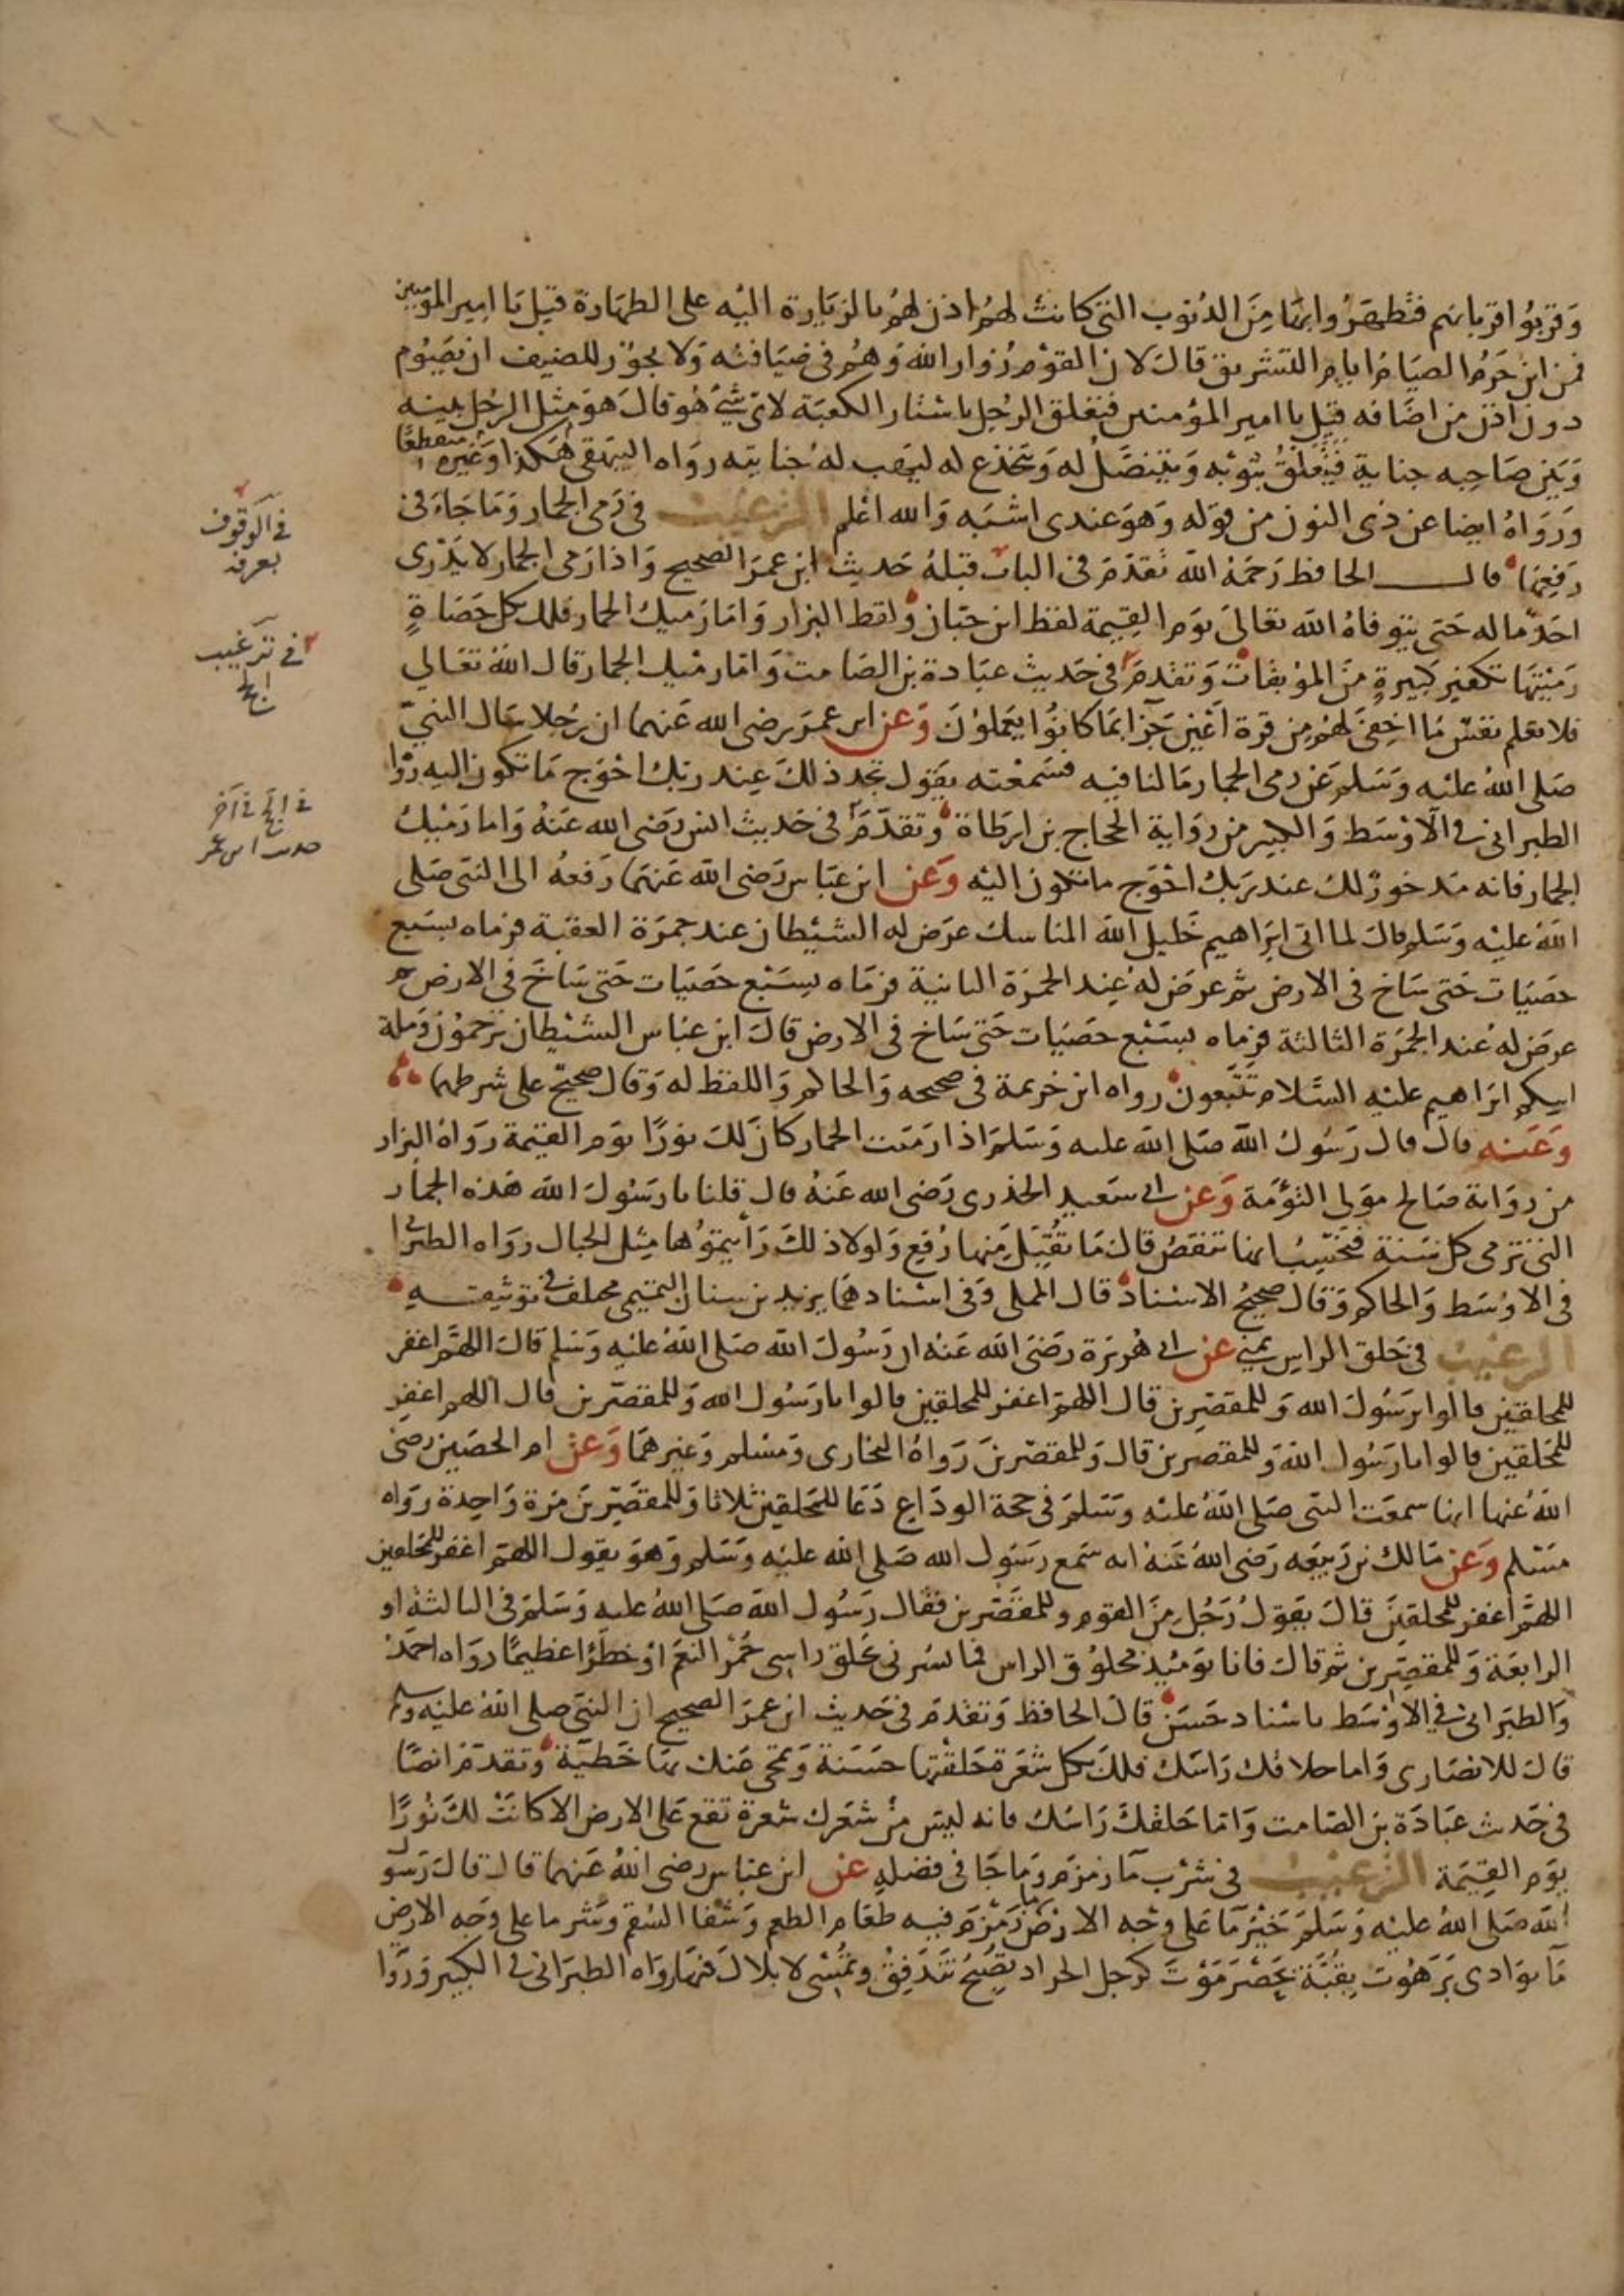 وَقربُوا قربانهم فتطهَرُوا بها مِنَ الذنوب التى كانت لهُم اذن لهُم بالزيَارة اليْه على الطهَارة قيل يَا امِير المؤمنين
فمن اين حَرمُ الصيَام ايام التشريق قالَ لان القوْم زوار الله وَهُم فى ضيَافته وَلا يجوز للضيف ان يصُوم
دون اذن من اضَافه قيل يا امير المؤمنين فتعلق الرجُل باستار الكعبَة لاى شئ هُو قال هوَ مثل الرجُل بينه
وَبَين صَاحِبه جناية فيتعلقُ بثوْبه وَيتنصَل له وَيتخذع له ليَهب لهُ جنايته روَاه البيهقى هَكذا وَغيره منقطعًا
وَروَاهُ ايضا عن ذى النون من قوله وَهوَ عندى اشبَه وَالله اعْلم الترغيب فى رَمى الجمار وَمَا جَاءَ فى
رَفعِهَا قال الحافظ رَحمَهُ الله تقدَم فى الباب قبلهُ حَديث ابن عمَر الصحيح وَاذا رَمى الجمار لا يَدْرى
احَد ما له حَتى يتوفاهُ الله تعَالى يوَم القِيمة لفظ ابن حبَان ولفظ البزار وَامَا رَميك الجمار فلك بكل حَصَاةٍ
رَميْتهَا تكفير كبيرةٍ مِنَ الموْبقات وَتقدمَ فى حَديث عبَادة بن الصَامت وَامَا رميْك الجمار قال الله تعَالى
فلا تعلم نفسٌ مَا اخفىَ لهُم مِن قرة اَعْين جَزآ بمَا كانوُا يعمَلوُنَ وَعن ابن عمَر رضى الله عَنهما ان رجُلا سال النبىّ
صَلى اللهُ عليْه وَسَلم عَن رمى الجمار مَا لنا فيه فسَمعْته يقول تجد ذلكَ عِند ربك احْوَج مَا تكون اليه روَا
الطبرانى فى الاوْسَط وَالكبير من روَاية الحجاج بن ارطاة وَتقدمَ فى حَديث انس رَضى الله عَنهُ وَاما رَميْك
الجمار فانه مَدخور لك عند رَبك احْوَج ما تكون اليْه وَعَن ابن عبَاس رَضى الله عَنهَما رَفعهُ الى النبَى صَلى
اللهُ عليْه وَسَلم قالَ لما اتى ابرَاهيم خَليل الله المناسك عرَض له الشيْطان عند جمرَة العقبَة فرماه بسَبع
حصَيَات حَتى سَاخ فى الارض ثم عرَض لهُ عِند الجمرَة الثانية فرمَاه بسَبْع حَصَيَات حَتى سَاخَ فى الارض ثم
عرَض لهُ عند الجمرَة الثالثة فرمَاه بسَبْع حصَيَات حَتى سَاخ فى الارض قالَ ابن عبَاس الشيْطان ترجمُون وَملة
ابيكم ابرَاهيم عليْه السَلام تَتَّبعون رواه ابن خزيمة فى صحيحه وَالحاكم وَاللفظ له وَقال صحيحٌ على شرطهما
وَعَنه قال قال رَسُولُ الله صَلى الله عليه وَسَلم اذا رَميَت الجمار كان لكَ نورًا يوَم القيَمة روَاهُ البزار
من روَاية صَالح موَلى التوْءَمَة وَعن ابى سَعيد الخذرى رَضى الله عَنهُ قال قلنا يا رَسُولَ الله هَذه الجمار
التى ترْمى كل سَنة فنحْسِبُ انها تنقصُ قالَ مَا تقُبِلَ مِنها رُفع وَلولا ذلكَ رَأيتمُوهَا مثل الجبال روَاه الطبرا
فى الاوْسَط وَالحاكم وَقال صحيحُ الاسْناد قال المملى وَفى اسْنادهمَا يزيد بن سنان التميمى مختلف فى توثيقه
الترغيب فى حَلق الراس بمنى عن ابى هُريَرة رَضىَ الله عَنه ان رَسُولَ الله صَلى اللهُ عليْه وَسَلم قالَ اللهُمَّ اغفر
للمحلقين قالوا يرَسُولَ الله وَللمقصِرين قال اللهمَ اغفر للمحلقين قالوا يا رَسُول الله وَللمقصّرين قال اللهم اغفِر
للمُحَلقين قالوا يا رَسُول اللهِ وَللمقصرين قالَ وَللمقصّرينَ رَوَاهُ البخارى وَمسْلم وَغيرهمَا وَعن ام الحصَين رضىَ
اللهُ عنها انها سمعَت النبى صَلى اللهُ عليْه وَسَلمَ فى حجة الودَاع دَعَا للمُحَلقين ثلاثا وَللمقصِّرينَ مَرة وَاحِدة روَاه
مسْلم وَعن مَالك بن رَبيعَه رَضى اللهُ عَنهُ انه سَمع رسَوُل الله صَلى الله عليْه وَسَلم وَهوَ يقول اللهمَ اغفر للمُحَلقين
اللهُمَّ اغفر للمُحَلقينَ قالَ يقوَل رَجُل مِنَ القوْم وللمقصّرين فقال رَسُول اللهَ صَلى اللهُ عليه وَسَلمَ فى الثالثة او
الرابعَة وَللمقصِّرين ثم قالَ فانا يوَمئِذٍ محلوُق الراس فما يسُرنى بحَلق راسى حُمْرَ النعَم اوْ خطَرًا عَظيمًا رواه احمَد
وَالطبَرانى فى الاوْسَط باسْناد حَسَن قالَ الحافظ وَتقدمَ فى حَديث ابن عمرَ الصحيح ان النبَى صلى اللهُ عليْه وسلم
قالَ للانصَارى وَاما حلاقك رَاسَك فلكَ بكل شعَرة حَلقتها حسَنة وَتمحى عَنك بهَا خَطيَة وَتقدمَ ايضًا
فى حَديث عبَادَة بن الصَامت وَامَا حَلقكَ رَاسَك فانه ليسَ مِنْ شعَرك شعرة تقع عَلى الارض الا كانتَ لكَ نورًا
يوَم القِيَمَة الترغيب فى شرْب مَآ زمزَم وَمَا جَا فى فضلهِ عن ابن عبَاس رضى اللهُ عَنهما قال قالَ رَسُو
الله صَلى اللهُ عليْه وَسَلمَ خَيْرُ مَآ عَلى وجْه الارض مَا زَمْزَم فيه طعَام الطعم وَشفا السُقم وَشر ما على وجَه الارض
مَآ بوَادى بَرَهُوت بقُبَّة بحَضْرَ مَوْتَ كرجل الجراد يُصْبحُ تتَدَفقُ وتمُسْى لا بلالَ فيهَا روَاه الطبَرانى فى الكبير وَروَا
فى الوقوف
بعرفة
فى ترغيب
الحج
فى الحج فى آخر
حديث ابن عمر